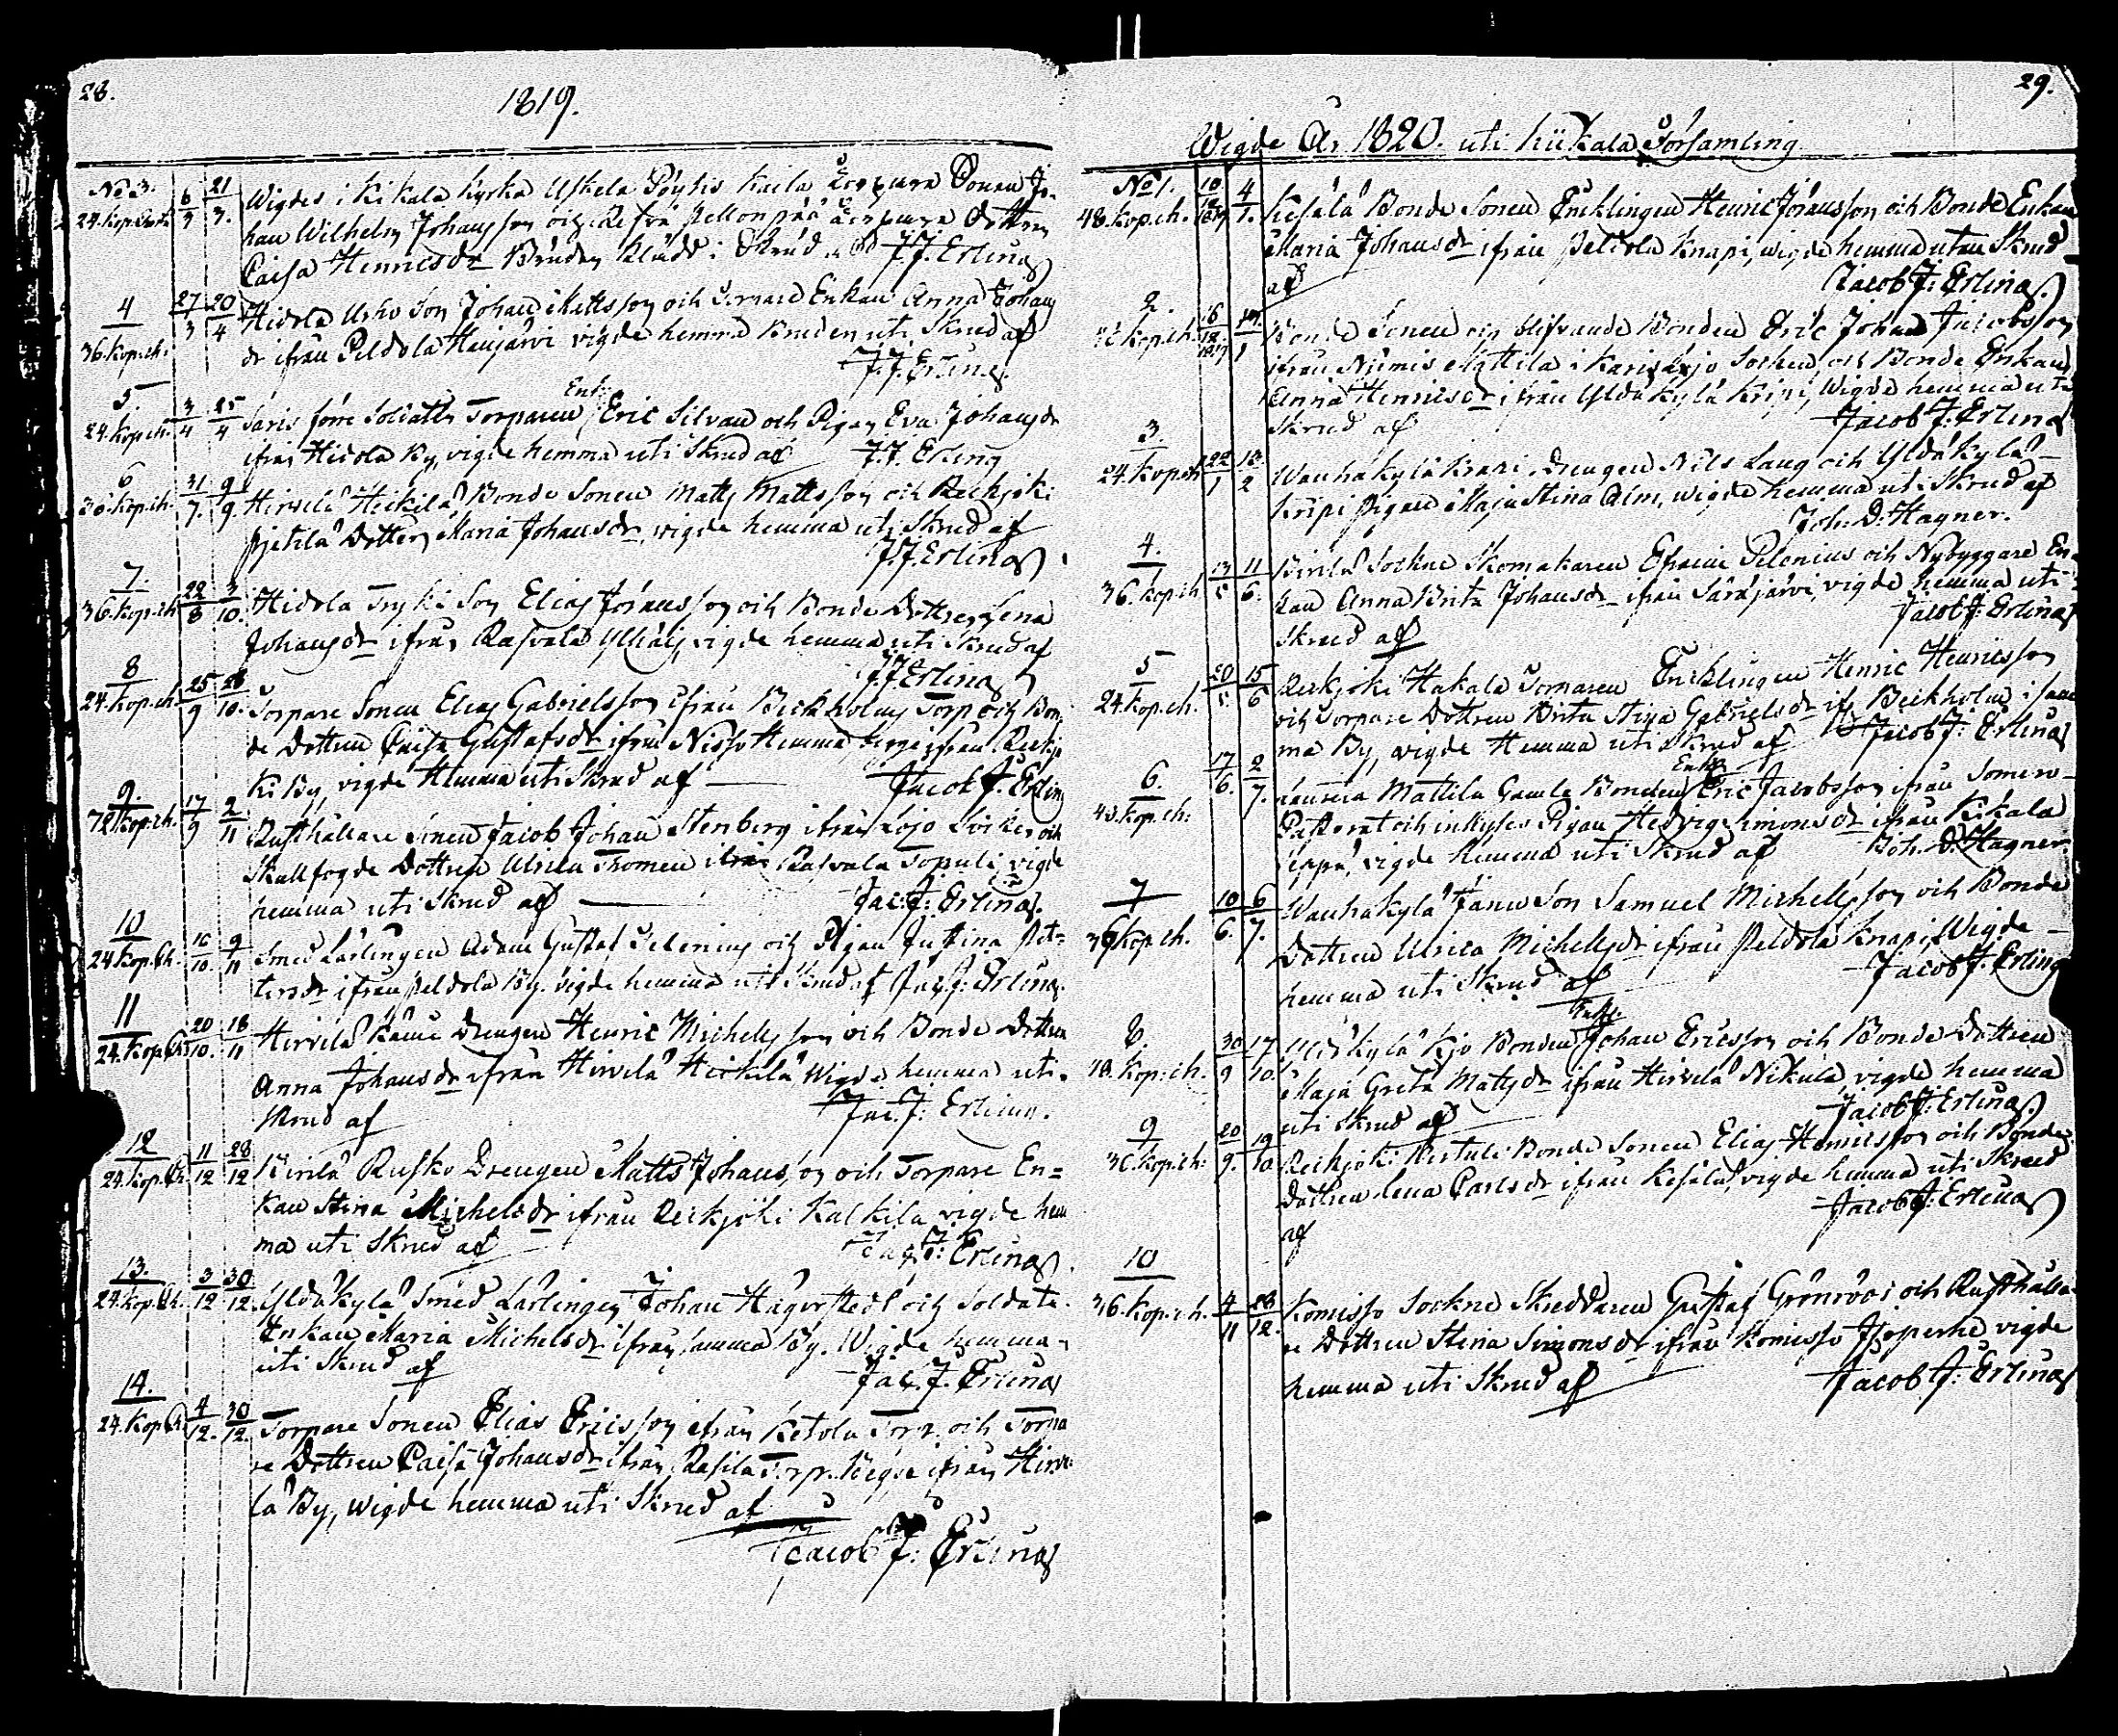 28.
1819.
No 3. 6/3 21/3. Wigdes i Kikala Kyrka Uskela Pöytis Kaila Torpare Sonen Jo-
24. Kop. han Wilhelm Johansson och Pellonpää Torpare Dottren
Caisa Henricsdr Bruden klädd i Skrud af J. J. Erling
4 27/3 20/4 Hidola Uško Son Johan Mattsson och Enkan Anna Johans
36. Kop. ch. dr ifrån Peldola Haujärvi vigde hemma Bruden uti Skrud af
J. J. Erling
5 3/4 25/4 Saris förre Soldaten Torparen Enk: Eric Silvan och Pigan Eva Johansdr
24. Kop. ch. ifrån Hidola By, vigde hemma uti Skrud af J. J. Erling
6 31/7. 9/9. Hirvelä Heikilä Bonde Sonen Matts Mattsson och Rekjoki
Kop. ch. Pietilä Dottren Maria Johansdr, vigde hemma uti Skrud af
J. J. Erling
7. 22/8 3/10. Hidola Son Elias Jöransson och Bonde Dottren Lena
36. Kop. ch. Johansdr ifrån Rasvala vigde hemma uti Skrud af
J. J. Erling
8 25/9 28/10. Torpare Sonen Elias Gabrielsson ifrån Beckholms Torp och Bon-
24. Kop. ch. de Dottren Caisa Gustafsdr ifrån Nisso Hemma, begge ifrån Rekjo
ki By, vigde Hemma uti Skrud af Jacob J. Erling
9. 17/9 2/11 Rusthållare Sonen Jacob Johan Stenberg ifrån Lojo Socken och
72 Kop. ch. Skallfogde Dottren Ulrica Tromen ifrån Rasvala Topuli vigde
hemma uti Skrud af Jac: J: Erling.
10 16/10. 9/11 Smed Lärlingen Adam Gustaf Selenius och Pigan Justina Pet-
24 Kop. Ch. tersdr ifrån Peldola By. vigde hemma uti Skrud af Jac. J: Erling.
11 20/10. 18/11 Hirvelä Drengen Henric Michelsson och Bonde Dottren
24. Kop. Ch. Anna Johansdr ifrån Hirvelä Heikilä Wigde hemma uti
Skrud af Jac. J: Erling.
12 11/12 28/12 Kirilä Rusko Drengen Matts Johansson och Torpare En=
24. Kop. Ch. kan Stina Michelsdr ifrån Rekjoki Kalkila vigde hem
ma uti Skrud af Jac J: Erling
13. 3/12 30/12. Yldäkylä Smed Lärlingen Johan Hägerstedt och Soldats
24. Kop. Ch. Enkan Maria Michelsdr ifrån samma By. Wigde hemma
uti Skrud af Jac. J. Erling
14. 4/12. 30/12. Torpare Sonen Elias Ericsson ifrån Ketola Torp. och Torpa
24. Kop. Ch re Dottren Caisa Johansdr ifrån Rasila Torp. Begge ifrån Hirve
lä By, wigde hemma uti Skrud af
Jacob J: Erling
29.
Wigde År 1820. uti Kiikala Församling
No 1. 10/12 1819 4/1. Kesälä Bonde Sonen Enklingen Henric Jöransson och Bonde Enkan
48. Kop. ch. Maria Johansdr ifrån Peldola Knapi, vigde hemma utan Skrud
af Jacob J: Erling.
2. 16/12 1819 Bonde Sonen och blifvande Bonden Eric Johan Jacobsson
Kop. ch. ifrån Nummis Mattila i Karislojo Socken, och Bonde Enkan
Anna Henricsdr ifrån Yldäkylä Kripi, Wigde hemma uti
Skrud af Jacob J: Erling
3. 22/1 12/2 Wanhakylä Krari Drengen Nils Lang och Yldäkylä
24. Kop. ch Kripi Pigan Maja Stina Alm, wigde hemma uti Skrud af
Joh. D. Hagner.
4. 13/5 11/6. Kirilä Sockne Skomakaren Efraim Selenius och Nybyggare En-
36. Kop. ch kan Anna Brita Johansdr ifrån Säräjärvi, vigde hemma uti
Skrud af Jacob J: Erling
5 20/5 15/6 Rekjoki Hakala Sonen Enklingen Henric Henricsson
24. Kop. ch. och Torpare Dottren Brita Stina Gabrielsdr if. Beckholm i sam
ma By, vigde Hemma uti Skrud af Jacob J: Erling
6. 17/6. 2/7. Mattila Gamle Bonden Enkl. Eric Jacobsson ifrån Somero
48. Kop. ch: Pastorat och inhyses Pigan Hedvig Simonsdr ifrån Kikala
Leppä, vigde hemma uti Skrud af Joh. D. Hagner.
7 10/6. 6/7. Wanhakylä Son Samuel Michelsson och Bonde
36 Kop. ch. Dottren Ulrica Michelsdr ifrån Peldola Knapi, Wigde
hemma uti Skrud af Jacob J. Erling
8. 30/9 17/10. Yldäkylä Bonden Enkl. Johan Ericsson och Bonde Dottren
48. Kop. ch. Maja Greta Mattsdr ifrån Hirvelä Nikula vigde hemma
uti Skrud af Jacob J: Erling.
9 20/9. 19/10 Rekjoki Bonde Sonen Elias Henricsson och Bonde
36. Kop. ch: Dottren Lena Carlsdr ifrån Kesälä, vigde hemma uti Skrud
af Jacob J: Erling
10
36. Kop. ch. 4/11 28/12. Komisso Sockne Skreddaren Gustaf Grönroos och Rusthålla
re Dottren Stina Simonsdr ifrån Komisso vigde
hemma uti Skrud af Jacob J: Erling